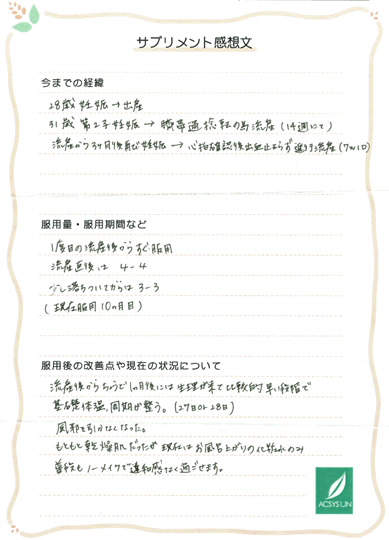 サプリメント感想文
今までの経緯
28歳 妊娠→出産
31歳 第2子妊娠 → 臍帯過捻転の為流産(14週にて)
流産から3ヶ月後再び妊娠 → 心拍確認後出血止まらず 流産(7w1D)
服用量・服用期間など
1度目の流産後からすぐ服用
流産直後は 4-4
少し落ちついてからは 3-3
(現在服用10ヵ月目)
服用後の改善点や現在の状況について
流産後からちょうど1ヵ月後には生理が来て比較的早い段階で
基礎体温、周期が整う。(27日or28日)
風邪を引かなくなった。
もともと乾燥肌だったが現在はお風呂上がりの化粧水のみ
普段もノーメイクで違和感なく過ごせます。
ACSYS UN